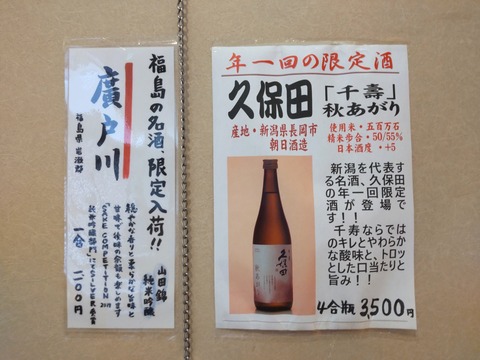 福島の名酒、限定入荷!!
廣戸川
福島県 岩瀬郡
山田錦
純米吟醸
穏やかな香りと柔らかな旨味と
甘味で後味の余韻も楽しめます
「SAKE COMPETITION 2017
純米吟醸部門」にてSILVER受賞
一合
年一回の限定酒
久保田
「千壽」
秋あがり
産地・新潟県長岡市
朝日酒造
使用米・五百万石
精米歩合・50/55%
日本酒度・+5
新潟を代表す
る名酒、久保田
の年一回限定
酒が登場で
す!!
千寿ならでは
のキレとやわらか
な酸味と、トロッ
とした口当たりと
旨み!!
久保田
4合瓶 3,500円